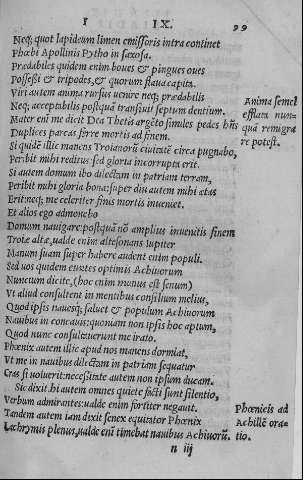 I IX. 99
Neq; quot lapideum limen emissoris intra continet
Phœbi Apollinis Pytho in saxosa.
Prædabiles quidem enim boues & pingues oues
Possessi & tripodes, & quorum flaua capita.
Viri autem anima rursus uenire neq; prædabilis
Neq; acceptabilis postquā transiuit septum dentium.
Mater eni me dicit Dea Thetis argēto similes pedes hñs
Duplices parcas ferre mortis ad finem.
Si quidē illic manens Troianorū ciuitatē circa pugnabo,
Peribit mihi reditus: sed gloria incorrupta erit.
Si autem domum ibo dilectam in patriam terram,
Peribit mihi gloria bona: super diu autem mihi ætas
Erit: neq; me celeriter finis mortis inuenict.
Et alios ego admoneho
Domum nauigare: postquā nō amplius inuenitis finem
Troiæ altæ, ualde enim altesonans Iupiter
Manum suam super habere audent enim populi.
Sed uos quidem euntes optimis Achiuorum
Nuncium dicite, (hoc enim munus est senum)
Vt aliud consultent in mentibus consilium melius,
Quod ipsis naues q; saluet & populum Achiuorum
Nauibus in concauis: quoniam non ipsis hoc aptum,
Quod nunc consuluerunt me irato.
Phœnix autem illic apud nos manens dormiat,
Vt me in nauibus dilectam in patriam sequatur
Cras si uoluerit: necessitate autem non ipsum ducam.
Sic dixit. hi autem omnes quiete facti sunt silentio,
Verbum admirantes: ualde enim fortiter negauit.
Tandem autem iam dixit senex equitator Phœnix
Lachrymis plenus, ualde eni timebat nauibus Achiuorū.
n iij
Anima semel
efflata nun-
quā remigra
re potest.
Phœnicis ad
Achillē ora-
tio.